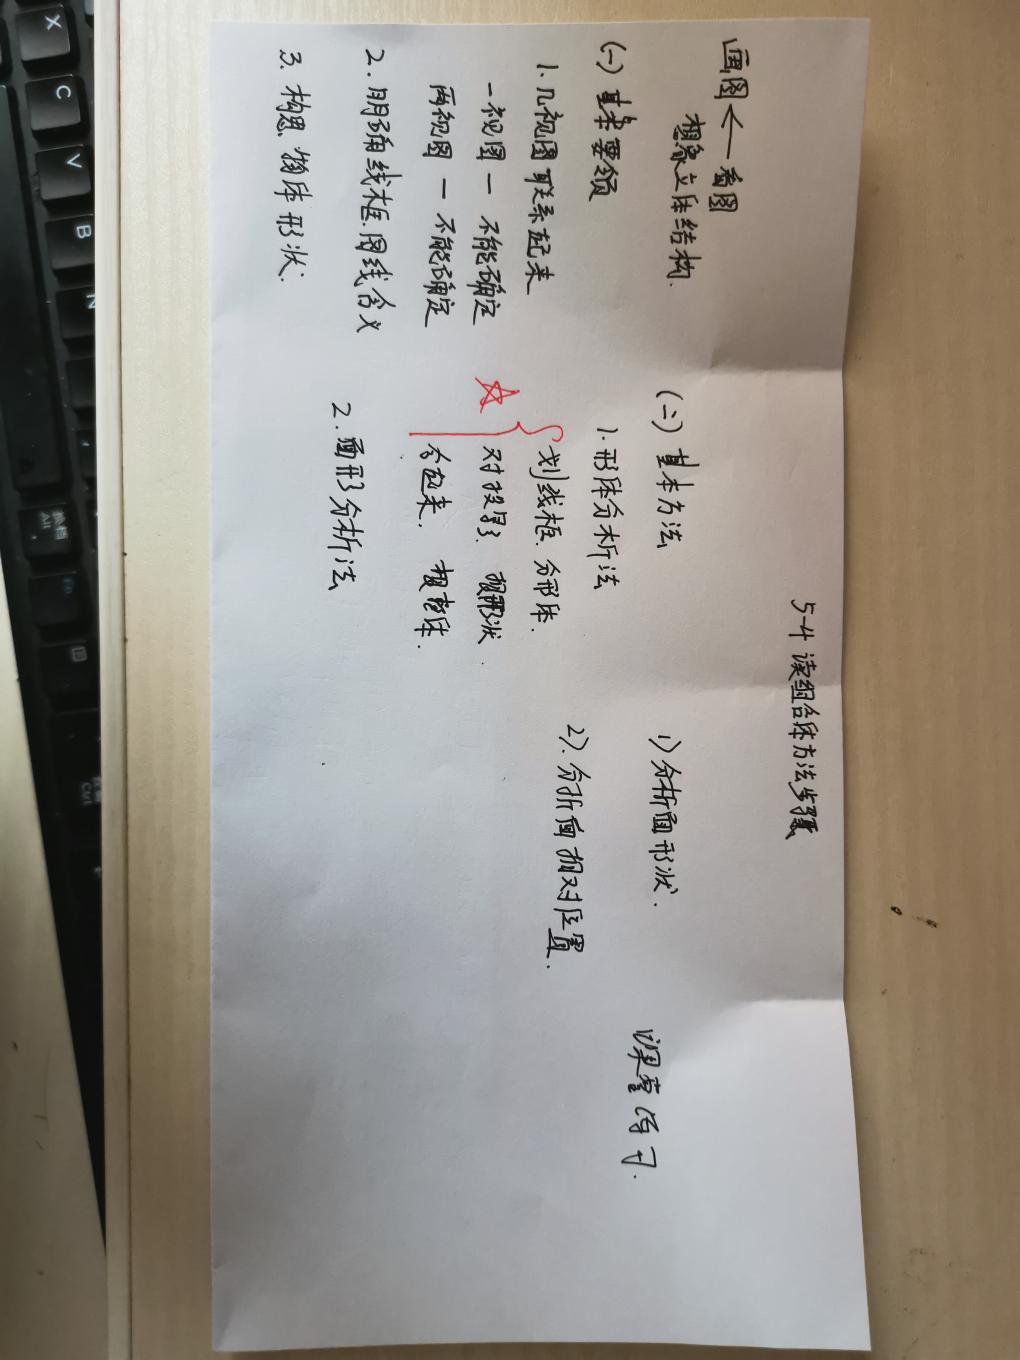 5-4 读组合体方法步骤
画图 ← 看图
想象立体结构.
(一) 基本要领
1. 几视图联系起来
一视图 — 不能确定
两视图 — 不能确定
2. 明确线框.图线含义
3. 构思物体形状.
(二) 基本方法
1. 形体分析法
划线框. 分形体.
对投影. 想形状.
合起来. 想整体.
2. 面形分析法
1) 分析面形状.
2). 分析面相对位置.
课堂练习.
X
C
V
B
N
Alt
Ctrl